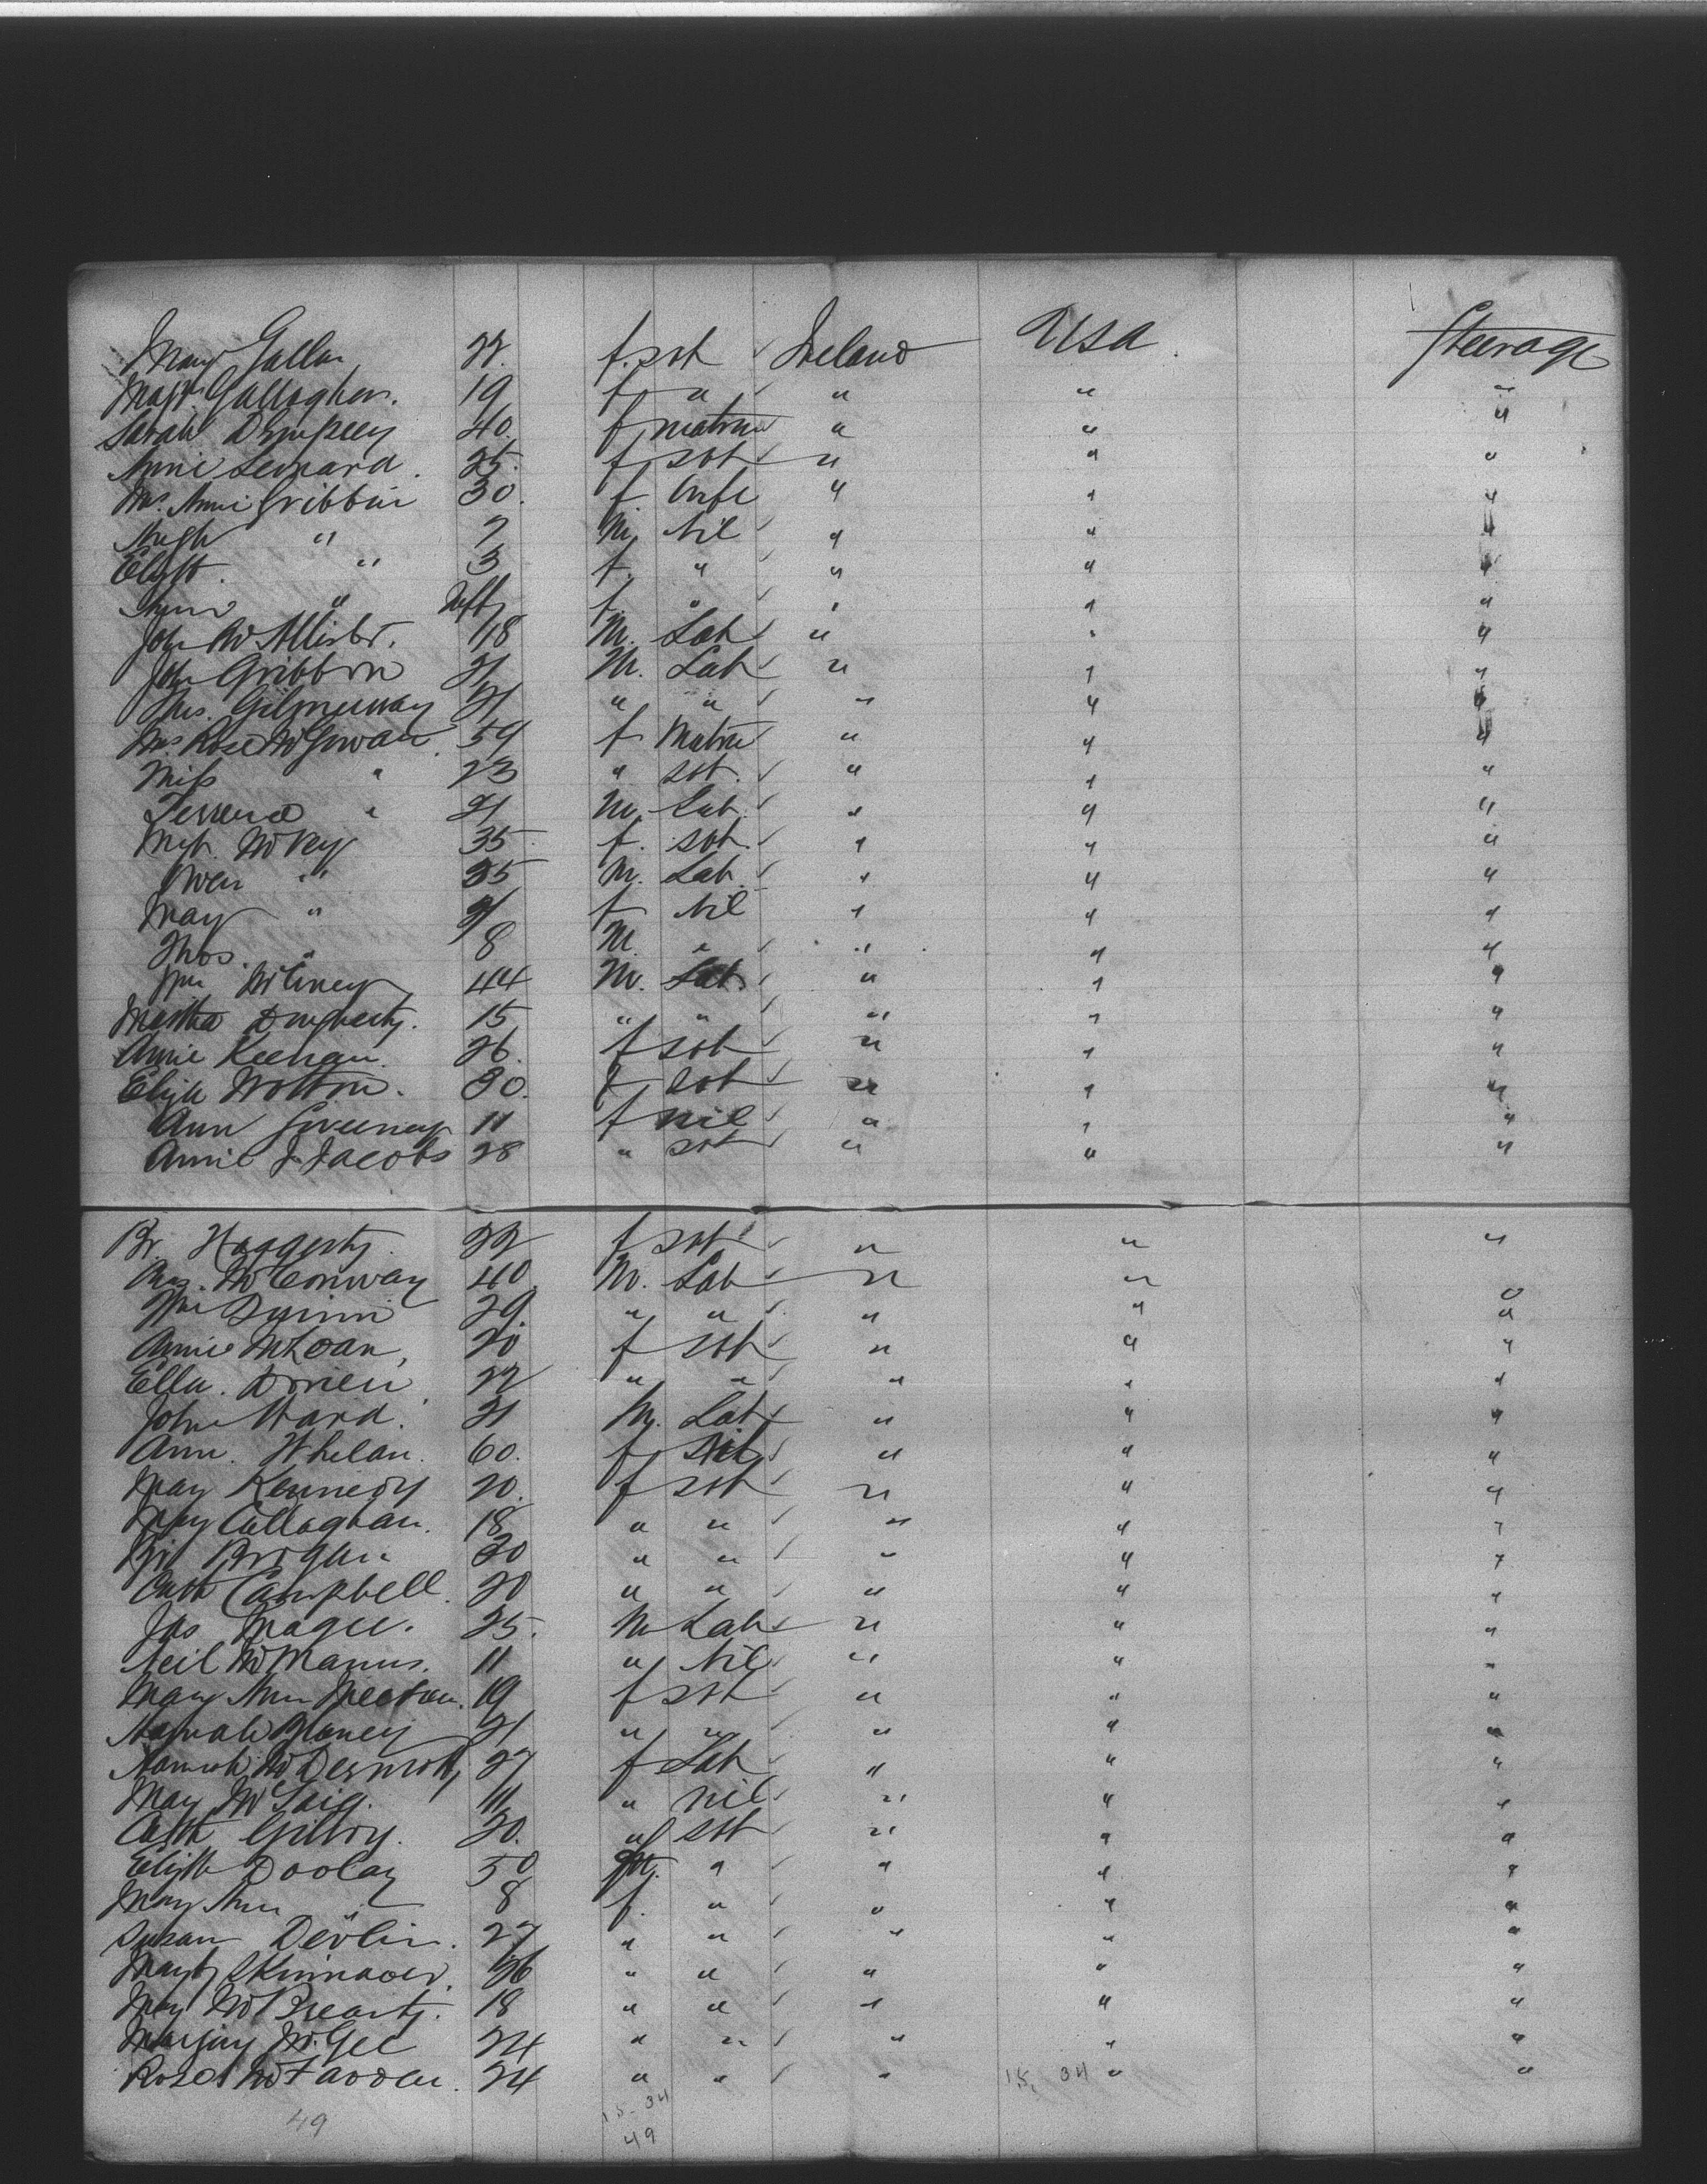 Mary Gallan 22. f. sot Ireland USA Steerage
Magt Gallagher. 19 f " " " "
Sarah Dempsey 40. f matron " " "
Annie Lennard. 25. f sot " " "
Mrs. Annie Gribbin 30. f Wife " " "
Hugh " 7 M. Nil " " "
Elizth. " 3 f. " " " "
Annie " Infty f. " " " "
John McAllister. 18 M. Lab " " "
John Gribbon 21 M. Lab " " "
Jas. 21 " " " " "
Mrs Rose McGowan 59 f Matron " " "
Miss " 23 " sot. " " "
Terrence " 21 M. Lab. " " "
Mgt. McVey 35 f. sot. " " "
Owen " 35 M. Lab. " " "
Mary " f Nil " " "
Thos. " 8 M. " " " "
Wm 44 M. Lab. " " "
Martha Dougherty. 15 " " " " "
Annie Keenan. 26. f sot " " "
Eliza 30. f sot " " "
Ann Greeney 11 f nil " " "
Annie J Jacobs 28 " sot " " "
Br. Haggerty. 22 f sot " " "
McConway 40. M. Lab " " "
Wm Quinn 29. " " " " "
Annie McLoan, 20 f sot " " "
Ella. 22 " " " " "
John Ward. 21 M. Lab " " "
Ann. Whelan. 60. f Nil " " "
Mary Kennedy 20. f sot " " "
Mary Callaghan. 18 " " " " "
Brogan 20 " " " " "
Cath Campbell. 20 " " " " "
Jas Magee. 25. M Lab " " "
Neil McManus. 11 " Nil " " "
Mary Ann 19 f sot " " "
Hannah Blaney 21 " " " " "
Hannah McDermott, 27 f Lab " " "
Mary 11 " nil " " "
Cath Gilroy. 20. " sot " " "
Elizth Doolay 50 " " " "
Mary Ann " 8 f. " " " "
Susan Devlin. 27 " " " " "
26 " " " " "
May 18 " " " " "
McGee 24 " " " " "
Rose McFadden. 24 " " " " "
15, 34
15-34
49 49